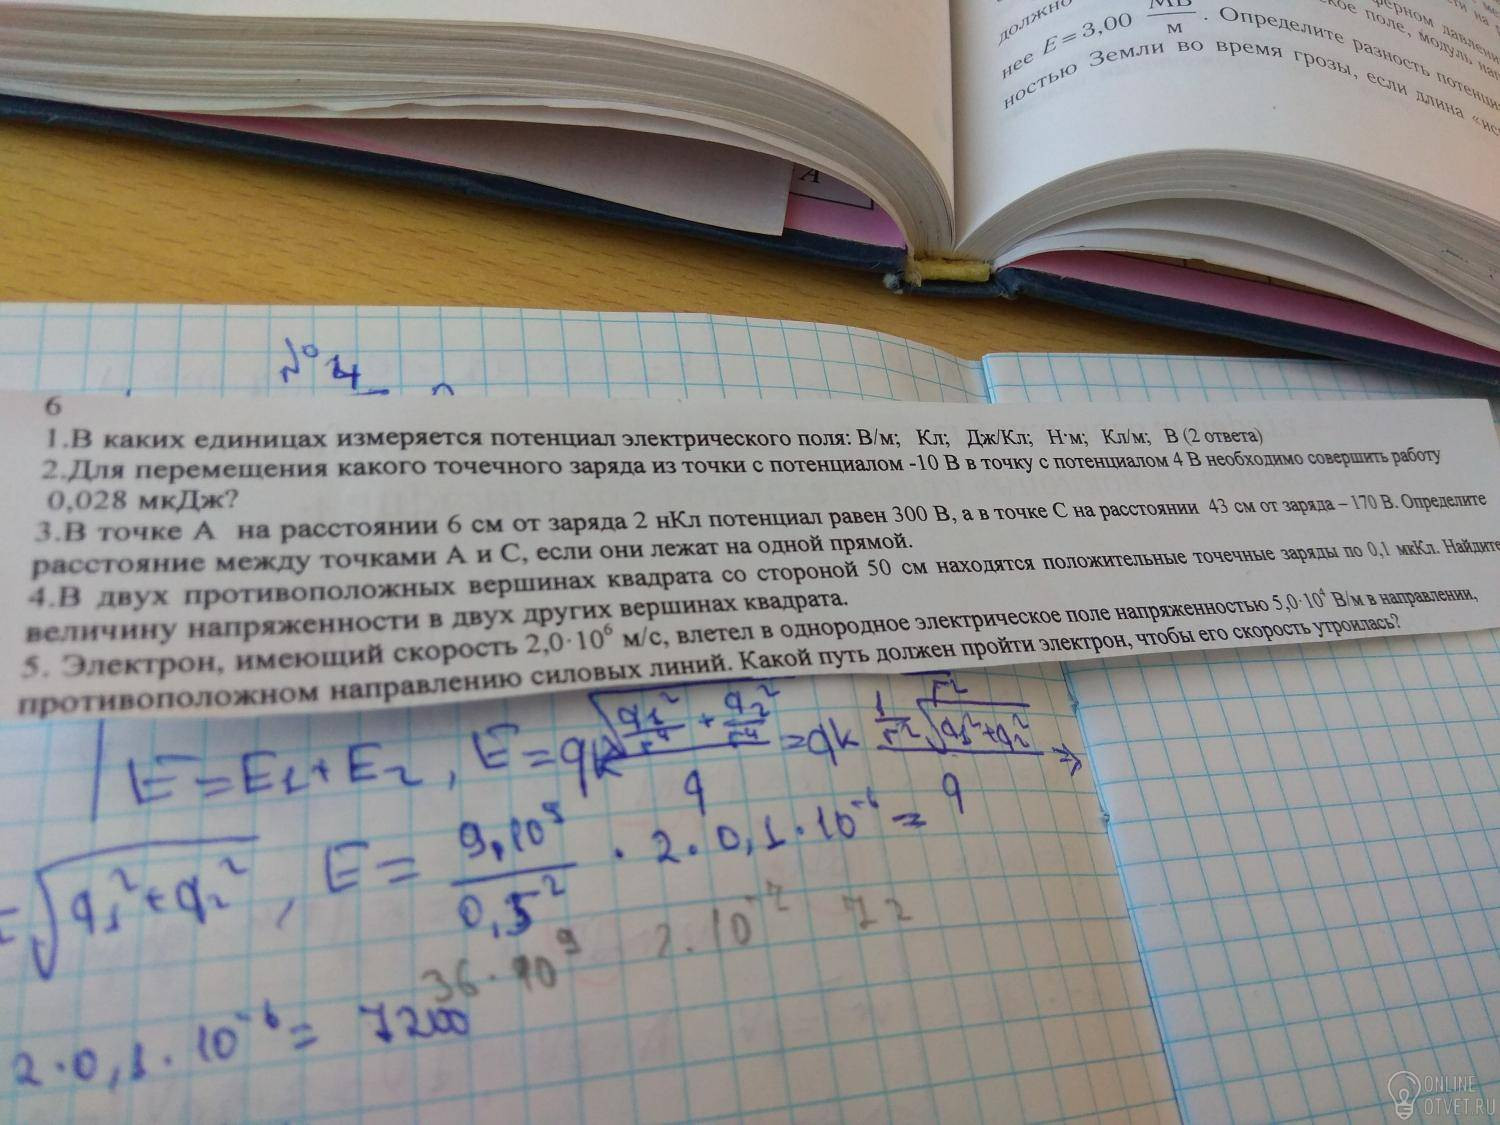 должно
ферном давлении
нее E = 3,00 МВ/м . Определите разность потенци
ское поле, модуль нап
ностью Земли во время грозы, если длина «ис
А
№ 4
6
1.В каких единицах измеряется потенциал электрического поля: В/м; Кл; Дж/Кл; Н·м; Кл/м; В (2 ответа)
2.Для перемещения какого точечного заряда из точки с потенциалом -10 В в точку с потенциалом 4 В необходимо совершить работу
0,028 мкДж?
3.В точке А на расстоянии 6 см от заряда 2 нКл потенциал равен 300 В, а в точке С на расстоянии 43 см от заряда – 170 В. Определите
расстояние между точками А и С, если они лежат на одной прямой.
4.В двух противоположных вершинах квадрата со стороной 50 см находятся положительные точечные заряды по 0,1 мкКл. Найдите
величину напряженности в двух других вершинах квадрата.
5. Электрон, имеющий скорость 2,0·10⁶ м/с, влетел в однородное электрическое поле напряженностью 5,0·10⁴ В/м в направлении,
противоположном направлению силовых линий. Какой путь должен пройти электрон, чтобы его скорость утроилась?
E = E₁ + E₂ , E = qk √(q₁²/r⁴ + q₂²/r⁴) / q = qk 1/r² √(q₁²+q₂²) / q →
= √(q₁² + q₂²) , E = 9·10⁹ / 0,5² · 2 · 0,1 · 10⁻⁶ =
36 · 10⁹ 2 · 10⁻⁷ 72
2 · 0,1 · 10⁻⁶ = 7200
ONLINE
OTVET.RU